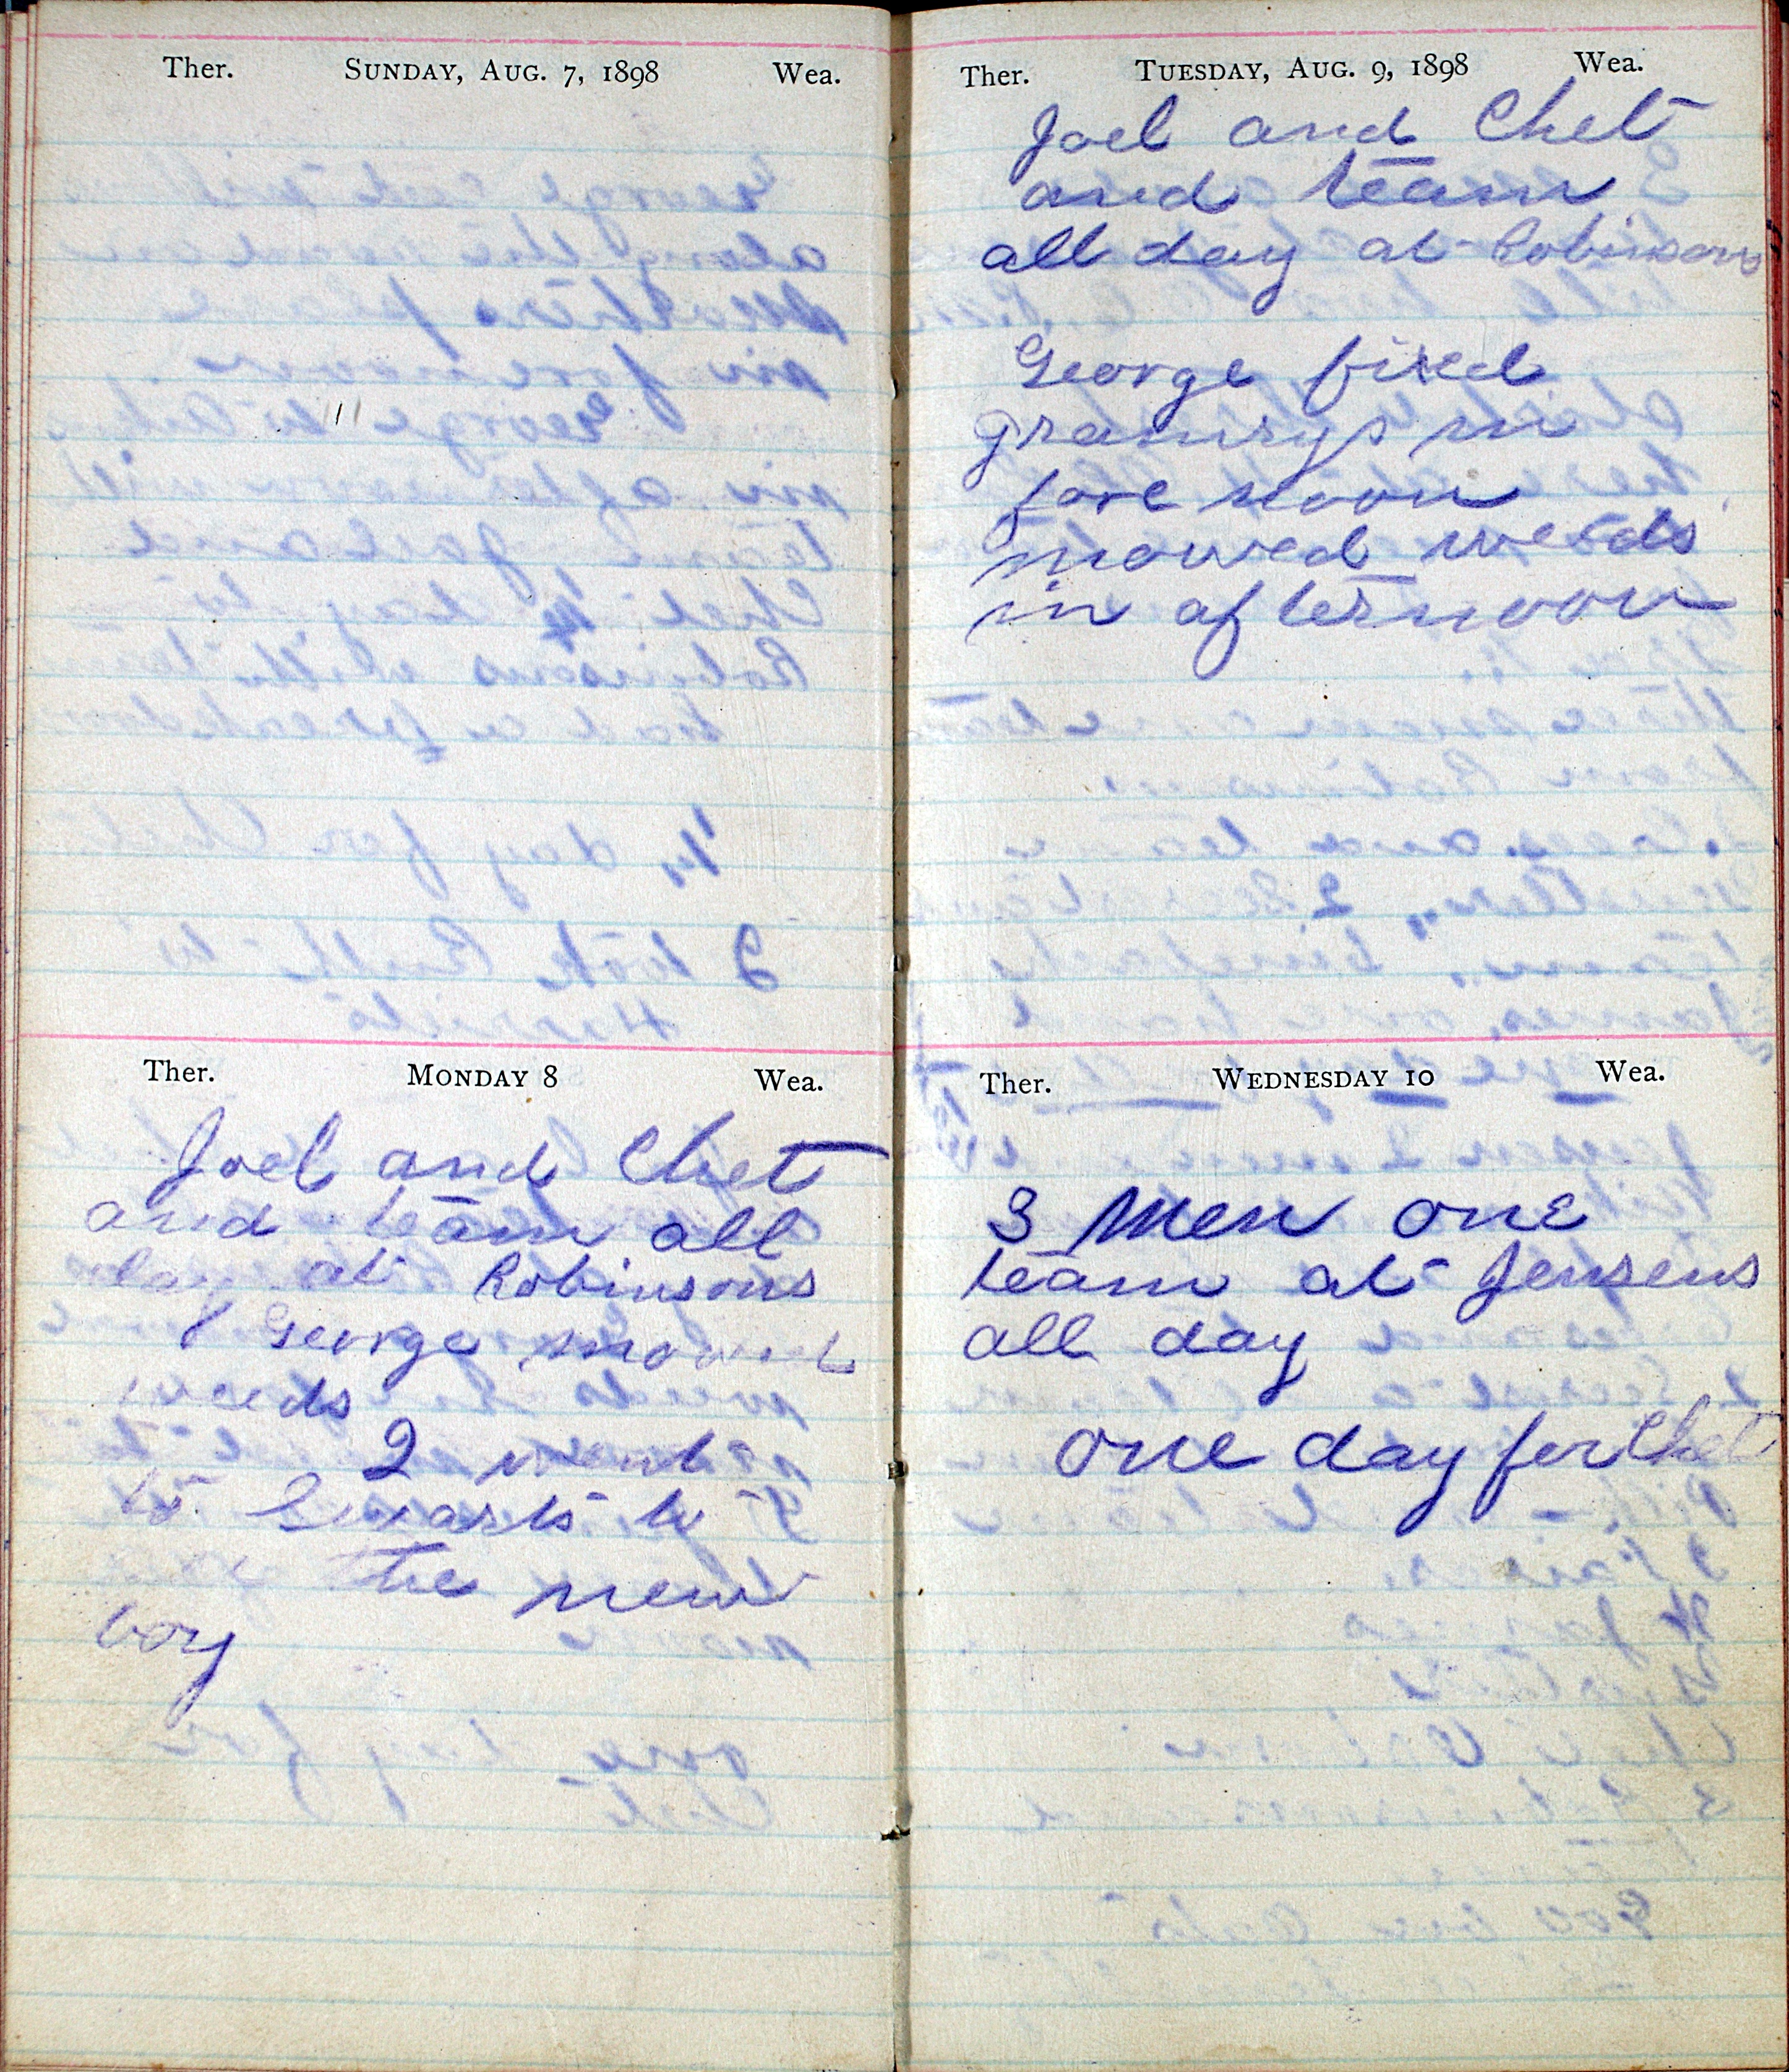 Ther. SUNDAY, AUG. 7, 1898 Wea.
Ther. MONDAY 8 Wea.
Joel and Chet
and team all
day at Robinsons
George mowed
weeds
I went
to Swarts to
see the new
boy
Ther. TUESDAY, AUG. 9, 1898 Wea.
Joel and Chet
and team
all day at Robinsons
George fixed
granrys in
fore noon
mowed weeds
in afternoon
Ther. WEDNESDAY 10 Wea.
3 Men one
team at Jensens
all day
one day for Chet